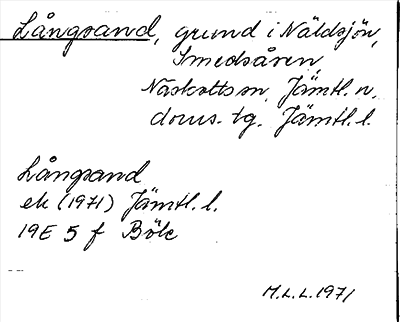 Långsand, grund i Näldsjön,
Smedsåren
Näskotts sn, Jämtl. n.
doms. tg. Jämtl. l.
Långsand
ek (1971) Jämtl. l.
19E 5 f Böle
M.L.L. 1971